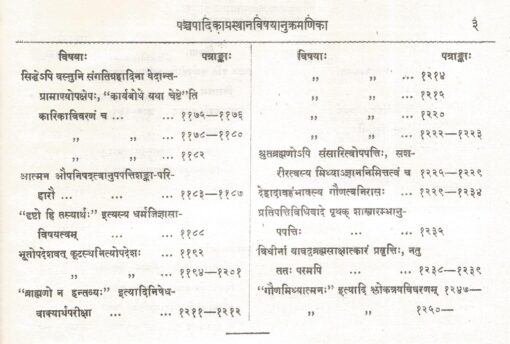 पञ्चपादिकाप्रस्थानविषयानुक्रमणिका ३
विषयाः पत्राङ्काः
सिद्धेऽपि वस्तुनि संगतिग्रहादिना वेदान्त-
प्रामाण्योपक्षेपः, “कार्यबोधे यथा चेष्टे”ति
कारिकाविवरणं च ... ... ११७५-११७६
,, ,, ... ११७८-११८०
,, ,, ... ११८२
आत्मन औपनिषदत्वानुपपत्तिशङ्का-परि-
हारौ ... ... ११८३-११८७
“दृष्टो हि तस्यार्थः” इत्यस्य धर्मजिज्ञासा-
विषयत्वम् ... ... ११८८
भूतोपदेशवत् कूटस्थनित्योपदेशः ११९२
,, ,, ... ११९४-१२०१
“ब्राह्मणो न हन्तव्यः” इत्यादिनिषेध-
वाक्यार्थपरीक्षा ... ... १२११-१२१२
विषयाः पत्राङ्काः
,, ,, ... १२१४
,, ,, ... १२१५
,, ,, ... १२२०
,, ,, ... १२२२-१२२३
श्रुतब्रह्मणोऽपि संसारित्वोपपत्तिः, सश-
रीरत्वस्य मिथ्याज्ञाननिमित्तत्वं च १२२५-१२२९
देहादावहंभावस्य गौणत्वनिरासः १२२९-१२३४
प्रतिपत्तिविधिवादे पृथक् शास्त्रारम्भानु-
पपत्तिः ... ... १२३५
विधीनां यावद्ब्रह्मसाक्षात्कारं प्रवृत्तिः, नतु
ततः परमपि ... १२३८-१२३९
“गौणमिथ्यात्मनः” इत्यादि श्लोकत्रयविवरणम् १२४७—
,, ,, १२५०—